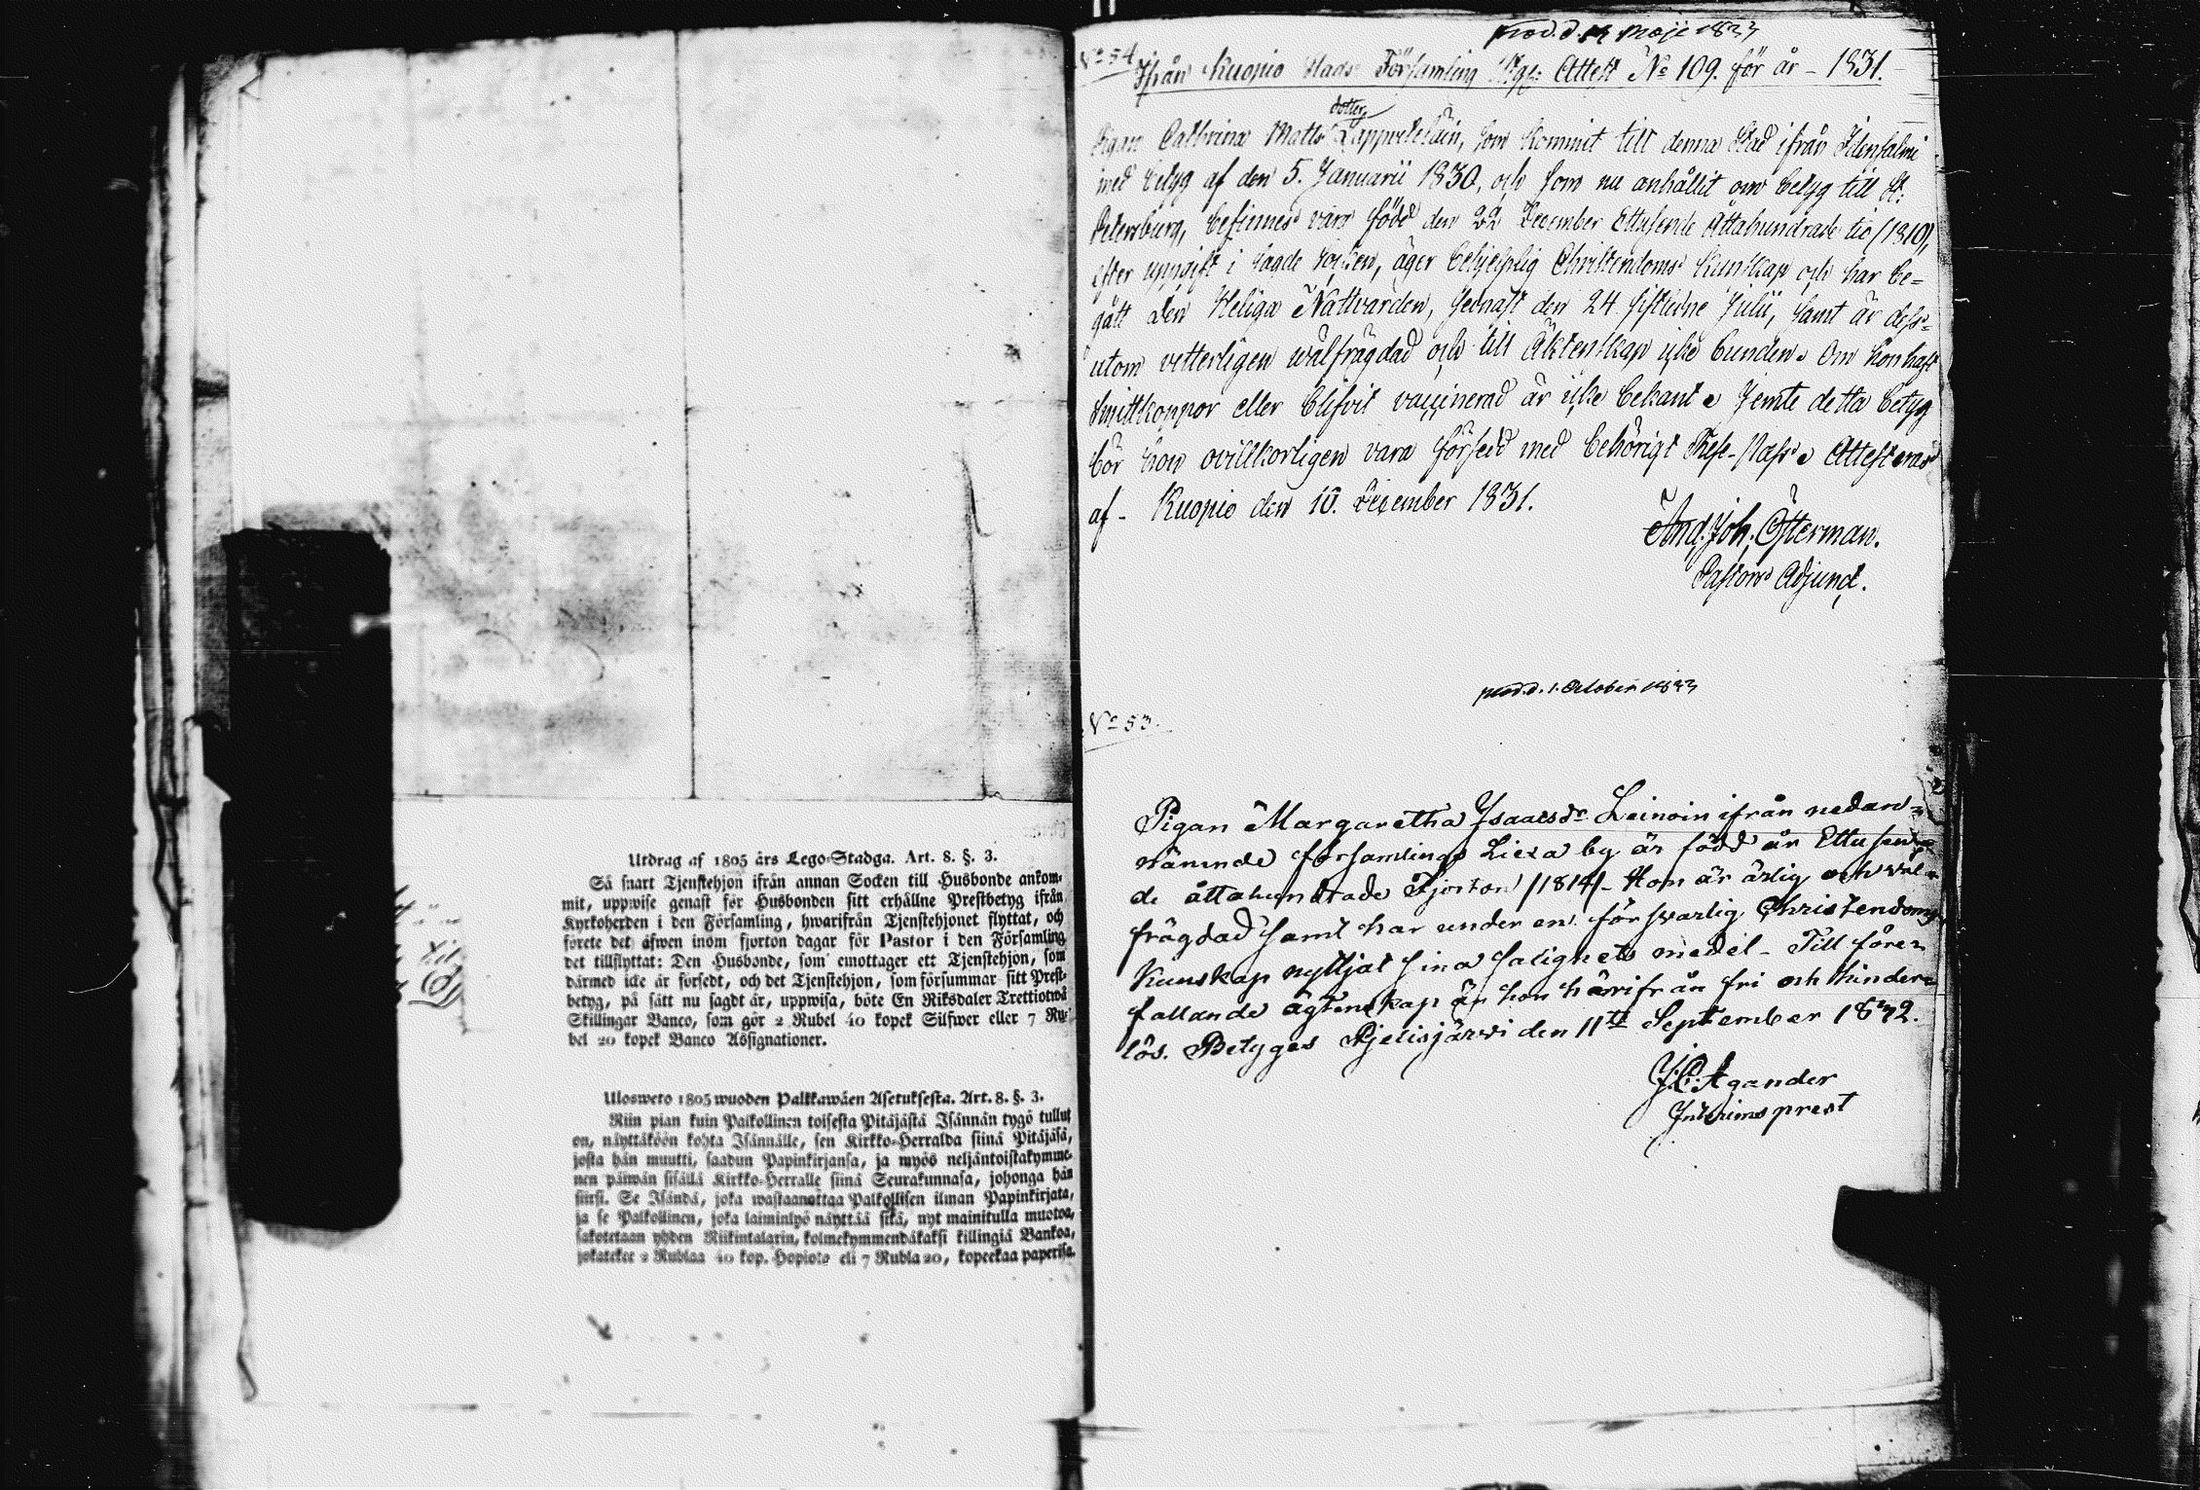 Utdrag af 1805 års Lego-Stadga. Art. 8. §. 3.
Så snart Tjenstehjon ifrån annan Socken till Husbonde ankom-
mit, uppwise genast för Husbonden sitt erhållne Prestbetyg ifrån
Kyrkoherden i den Församling, hwarifrån Tjenstehjonet flyttat, och
förete det äfwen inom fjorton dagar för Pastor i den Församling
det tillflyttat: Den Husbonde, som emottager ett Tjenstehjon, som
därmed icke är försedt, och det Tjenstehjon, som försummar sitt Prest-
betyg, på sätt nu sagdt är, uppwisa, böte En Riksdaler Trettiotwå
Skillingar Banco, som gör 2 Rubel 40 kopek Silfwer eller 7 Ru-
bel 20 kopek Banco Assignationer.
Ulosweto 1805 wuoden Palkkawäen Asetuksesta. Art. 8. §. 3.
Niin pian kuin Palkollinen toisesta Pitäjästä Isännän tygö tullut
on, näyttäköön kohta Isännälle, sen Kirkko-Herralda siinä Pitäjäsä,
josta hän muutti, saadun Papinkirjansa, ja myös neljäntoistakymme-
nen päiwän sisällä Kirkko-Herralle siinä Seurakunnasa, johonga hän
siirsi. Se Isändä, joka wastaanottaa Palkollisen ilman Papinkirjata,
ja se Palkollinen, joka laiminlyö näyttää sitä, nyt mainitulla muotoa,
sakotetaan yhden Riikintalarin, kolmekymmendäkaksi killingiä Bankoa,
jokatekee 2 Rublaa 40 kop. Hopioto eli 7 Rubla 20, kopeekaa paperisa.
prod. d. Maji 1833
No 54.
Ifrån Kuopio Stads Församling Attest No 109. för år - 1831.
dotter
Pigan Cathrina Matts Lappveteläin, som kommit till denna Stad ifrån Idensalmi
med betyg af den 5. Januarii 1830, och som nu anhållit om betyg till St:
Petersburg, befinnes vara född den 22 December Ettusende Åttahundrade tio (1810),
efter uppgift i sagde Socken, äger behjelplig Christendoms kunskap och har be=
gått den Heliga Nattvarden, senast den 24 sistledne Julii, samt är dess=
utom vetterligen wälfrägdad och till Äktenskap icke bunden. Om hon haft
Smittkoppor eller blifvit vaccinerad är icke bekant. Jemte detta betyg
bör hon ovillkorligen vara försedd med behörigt Rese-Pass. Attesteras
af - Kuopio den 10. December 1831.
And. Joh. Österman.
Pastors Adjunct.
prod. d. 1. October 1833
No 53.
Pigan Margaretha Isaacsdr Leinoin ifrån nedan=
nämnde församlings Liexa by är född år Ettusen=
de åttahundrade Fjorton /1814/ - Hon är ärlig och wäl=
frägdad samt har under en försvarlig Christendoms
Kunskap nyttjat sina salighets medel - Till före=
fallande ägtenskap är hon härifrån fri och hinder=
lös. Betygas Pjelisjärwi den 11te September 1832.
J: C: Agander
Interims prest